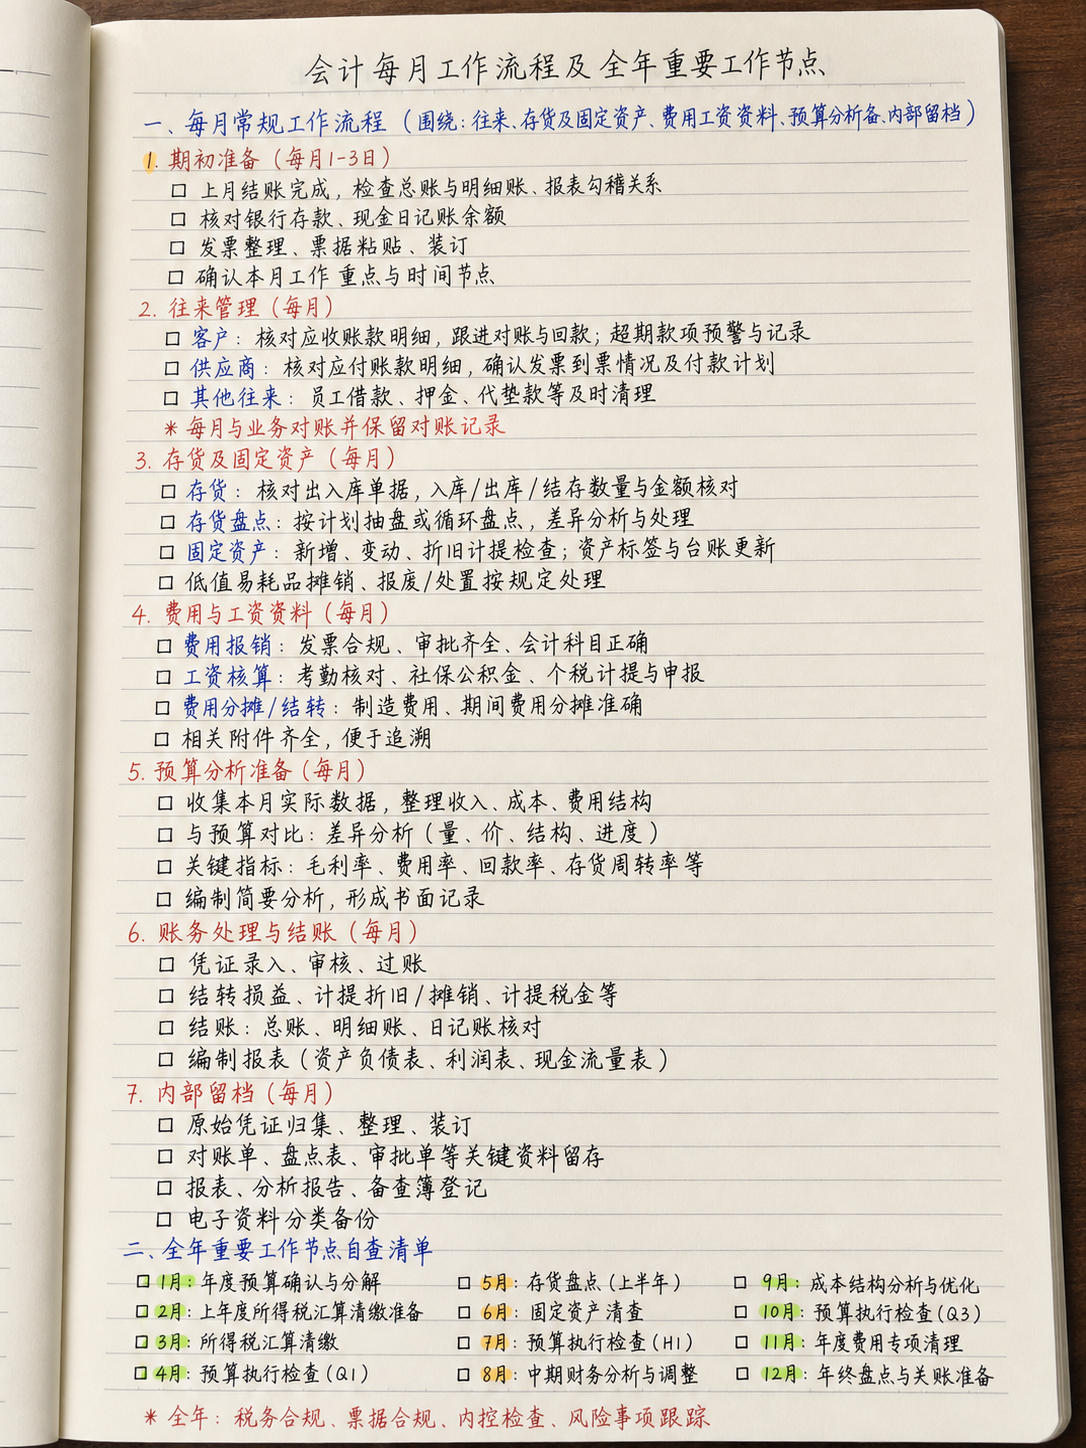 会计每月工作流程及全年重要工作节点
一、每月常规工作流程（围绕：往来、存货及固定资产、费用工资资料、预算分析备、内部留档）
1. 期初准备（每月1-3日）
☐ 上月结账完成，检查总账与明细账、报表勾稽关系
☐ 核对银行存款、现金日记账余额
☐ 发票整理、票据粘贴、装订
☐ 确认本月工作重点与时间节点
2. 往来管理（每月）
☐ 客户：核对应收账款明细，跟进对账与回款；超期款项预警与记录
☐ 供应商：核对应付账款明细，确认发票到票情况及付款计划
☐ 其他往来：员工借款、押金、代垫款等及时清理
* 每月与业务对账并保留对账记录
3. 存货及固定资产（每月）
☐ 存货：核对出入库单据，入库/出库/结存数量与金额核对
☐ 存货盘点：按计划抽盘或循环盘点，差异分析与处理
☐ 固定资产：新增、变动、折旧计提检查；资产标签与台账更新
☐ 低值易耗品摊销、报废/处置按规定处理
4. 费用与工资资料（每月）
☐ 费用报销：发票合规、审批齐全、会计科目正确
☐ 工资核算：考勤核对、社保公积金、个税计提与申报
☐ 费用分摊/结转：制造费用、期间费用分摊准确
☐ 相关附件齐全，便于追溯
5. 预算分析准备（每月）
☐ 收集本月实际数据，整理收入、成本、费用结构
☐ 与预算对比：差异分析（量、价、结构、进度）
☐ 关键指标：毛利率、费用率、回款率、存货周转率等
☐ 编制简要分析，形成书面记录
6. 账务处理与结账（每月）
☐ 凭证录入、审核、过账
☐ 结转损益、计提折旧/摊销、计提税金等
☐ 结账：总账、明细账、日记账核对
☐ 编制报表（资产负债表、利润表、现金流量表）
7. 内部留档（每月）
☐ 原始凭证归集、整理、装订
☐ 对账单、盘点表、审批单等关键资料留存
☐ 报表、分析报告、备查簿登记
☐ 电子资料分类备份
二、全年重要工作节点自查清单
☐ 1月：年度预算确认与分解
☐ 2月：上年度所得税汇算清缴准备
☐ 3月：所得税汇算清缴
☐ 4月：预算执行检查（Q1）
☐ 5月：存货盘点（上半年）
☐ 6月：固定资产清查
☐ 7月：预算执行检查（H1）
☐ 8月：中期财务分析与调整
☐ 9月：成本结构分析与优化
☐ 10月：预算执行检查（Q3）
☐ 11月：年度费用专项清理
☐ 12月：年终盘点与关账准备
* 全年：税务合规、票据合规、内控检查、风险事项跟踪